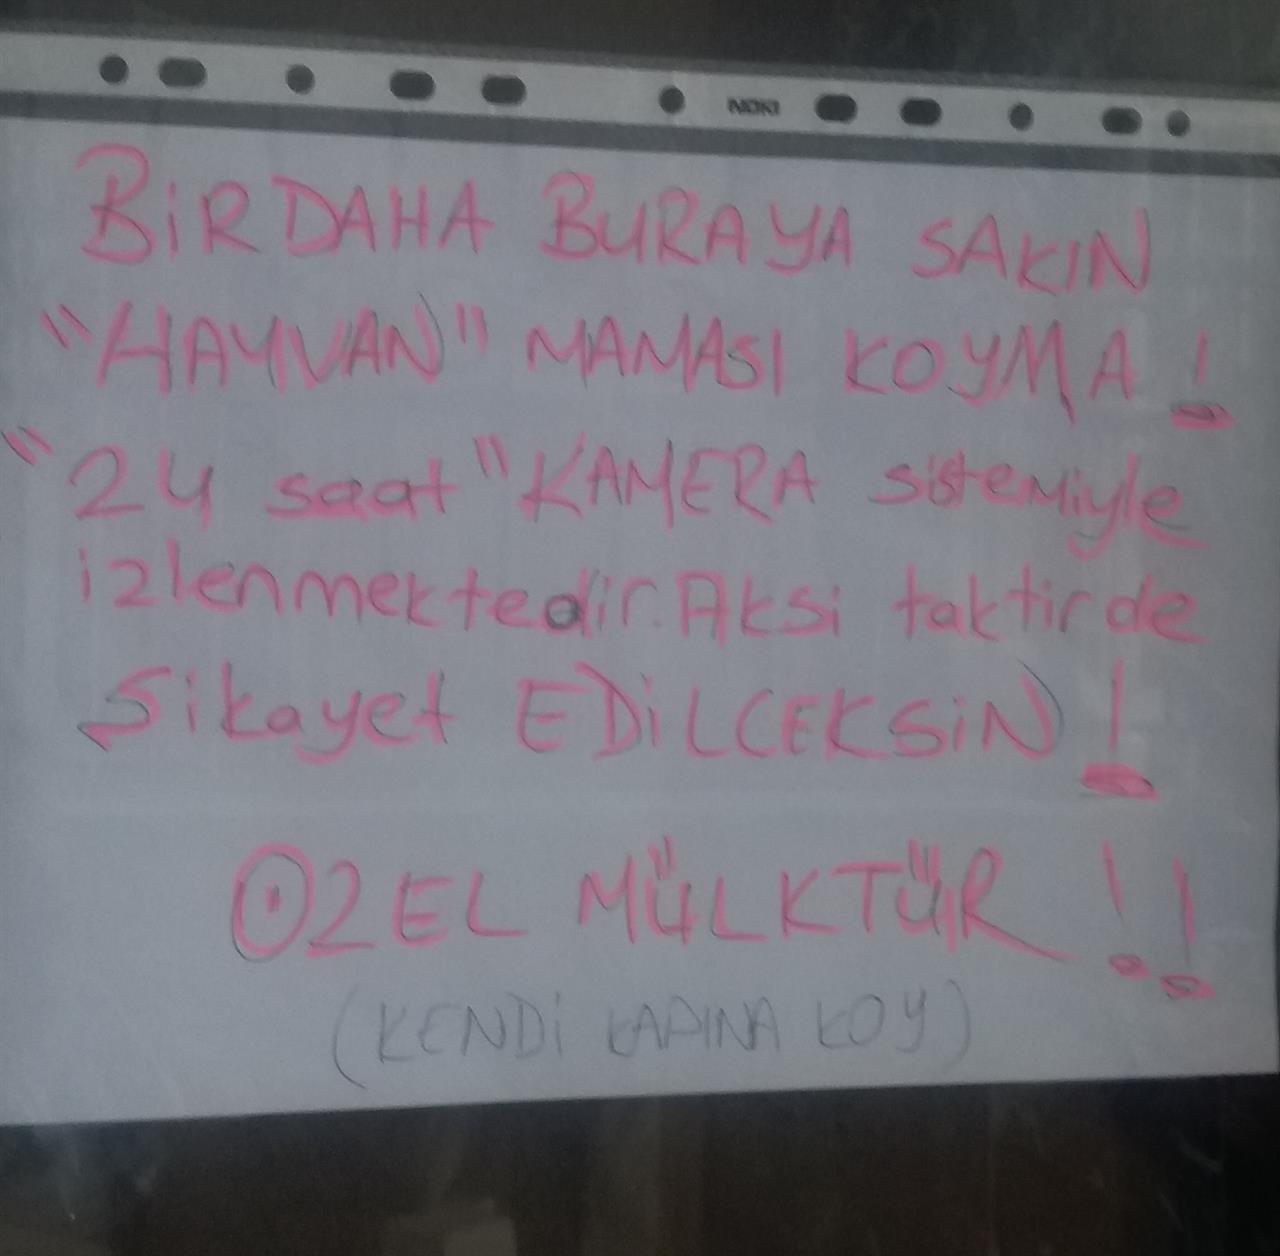 NOKI
BİRDAHA BURAYA SAKIN
"HAYVAN" MAMASI KOYMA !
"24 saat" KAMERA sistemiyle
izlenmektedir. Aksi taktirde
Şikayet EDİLCEKSİN !
OZEL MÜLKTÜR !!
(KENDİ KAPINA KOY)